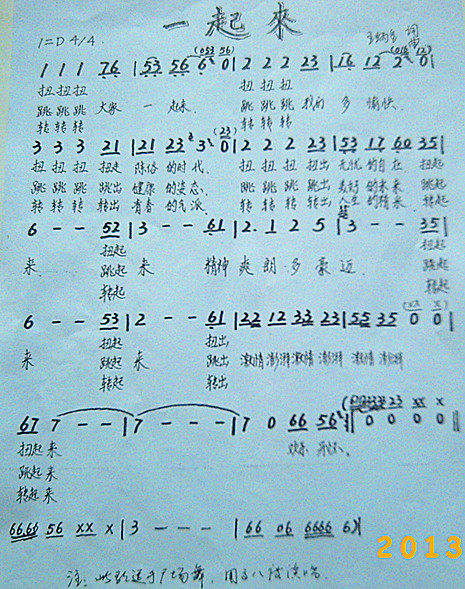 一起來
1=D 4/4 词
1 1 1 76 | 53 56 6 0 | 2 2 2 23 | 16 12 2 0 |
扭扭扭 扭扭扭
跳跳跳 大家 一 起来 跳跳跳 我们 多 愉快
转转转 转转转
3 3 3 21 | 21 23 3 0 | 2 2 2 23 | 53 17 60 35 |
扭 扭 扭 的时代 扭 扭 扭 扭出 无忧 的自在 扭起
跳 跳 跳 跳出 健康 的姿态 跳 跳 跳 跳出 美好 的未来 跳起
转 转 转 转出 青春 的气派 转 转 转 转出 人生 的精采 转起
6 - - 52 | 3 - - 61 | 2. 1 2 5 | 3 - - 35 |
来 扭起 来 精神 爽 朗 多 豪 迈 扭起
跳起 跳起
转起 转起
6 - - 53 | 2 - - 61 | 22 12 33 23 | 55 35 0 0 |
来 扭起 来 扭出 激情 澎湃 激情 澎湃 激情 澎湃
跳起 跳出
转起 转出
67 7 - - | 7 - - - | 7 0 66 56 | 0 0 0 0
扭起 来
跳起 来
转起 来
6666 56 xx x | 3 - - - | 66 06 6666 6 |
2013
注: 此歌适于广场舞,